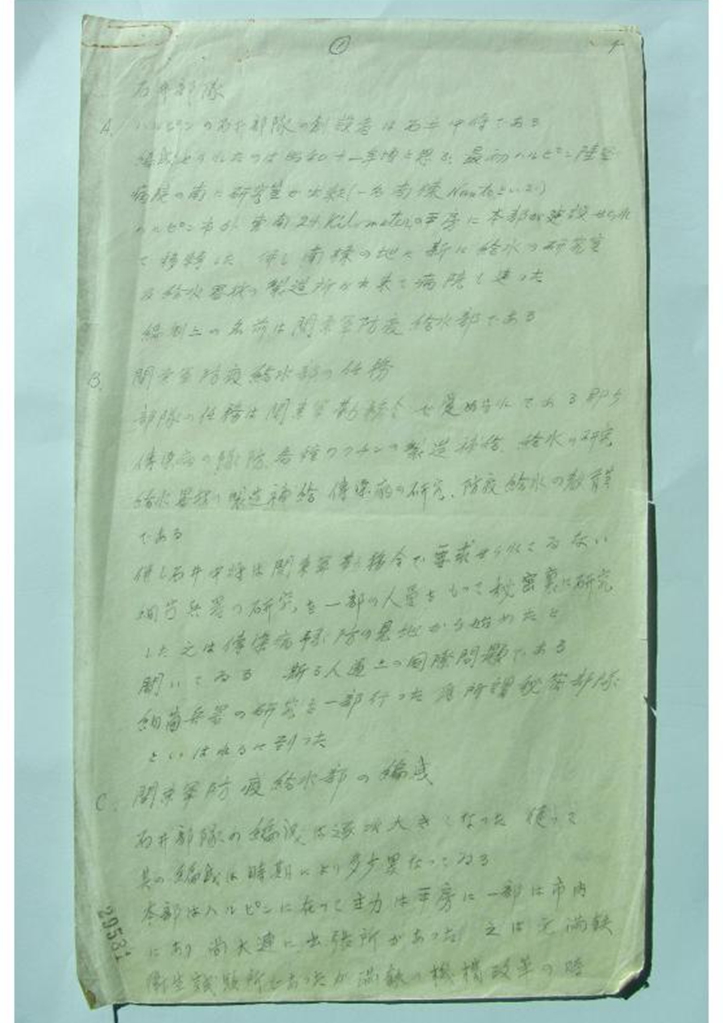 ①
石井部隊
A. ハルピンの石井部隊の創設者は石井中将である
編成せられたのは昭和十一年頃と思う、最初ハルピン陸軍
病院の南に研究室が出来(一名南棟 といふ)
ハルピン市から東南24 の平房に本部が建設せられ
て移転した、併し南棟の地に新に給水の研究室
及給水器材の製造所が出来て病院と違った
編制上の名前は関東軍防疫給水部である
B. 関東軍防疫給水部の任務
部隊の任務は関東軍勤務令で定められてある即ち
伝染病の予防各種ワクチンの製造補給、給水の研究、
給水器材の製造補給、伝染病の研究、防疫給水の教育
である
併し石井中将は関東軍勤務令で要求せられてゐない
細菌兵器の研究を一部の人員をもって秘密裏に研究
した之は伝染病予防の見地から始めたと
聞いてゐる 斯る人道上の国際問題である
細菌兵器の研究を一部行った為所謂秘密部隊
といはれるに到った
C. 関東軍防疫給水部の編成
石井部隊の編成は逐次大きくなった 従って
其の編成は時期により多少異なってゐる
本部はハルピンに在って主力は平房に一部は市内
にあり尚大連に出張所があった 之は元満鉄
衛生試験所であったが満鉄の機構改革の時
29531